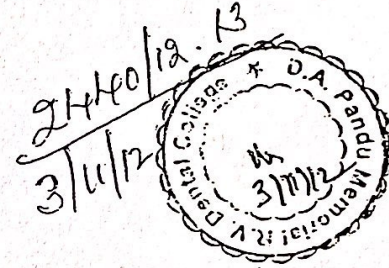 2440/12-13
3/11/12
D.A. Pandu Memorial R.V. Dental College *
3/11/12